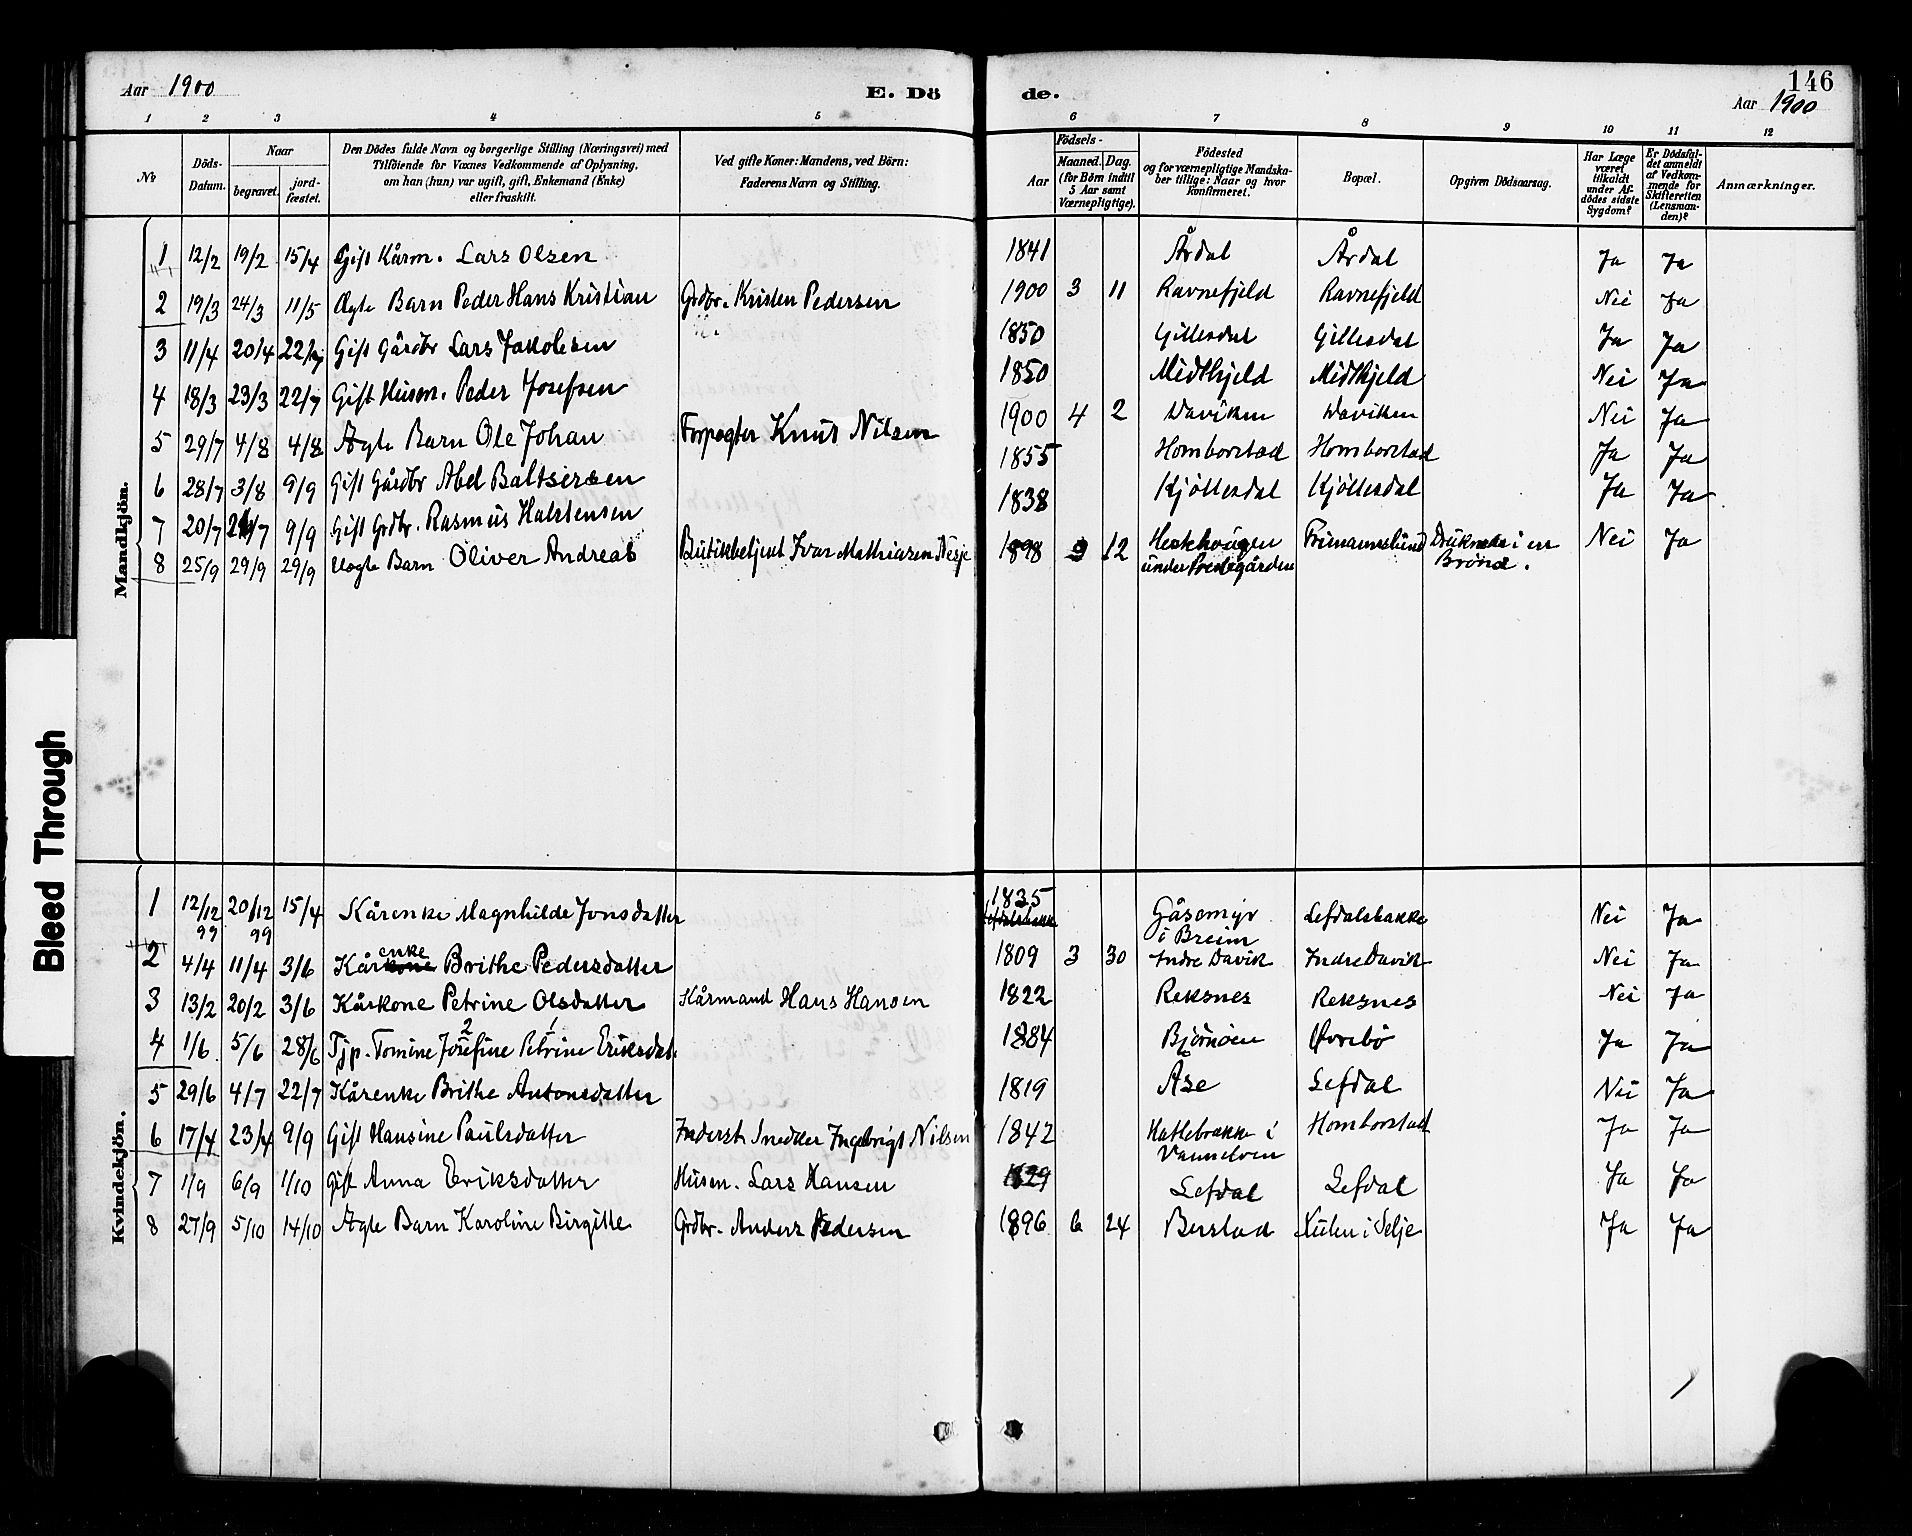 146
Aar 1900
E. Dö
de.
Aar 1900
1 2 3 4 5 6 7 8 9 10 11 12
No
Döds-
Datum.
Naar
begravet.
jord-
fæstet.
Den Dödes fulde Navn og borgerlige Stilling (Næringsvei) med
Tilföiende for Voxnes Vedkommende af Oplysning,
om han (hun) var ugift, gift, Enkemand (Enke)
eller fraskilt.
Ved gifte Koner: Mandens, ved Börn:
Faderens Navn og Stilling.
Födsels-
Aar
Maaned. Dag.
(for Börn indtil
5 Aar samt
Værnepligtige).
Födested
og for værnepligtige Mandska-
ber tillige: Naar og hvor
konfirmeret.
Bopæl.
Opgiven Dödsaarsag.
Har Læge
været
tilkaldt
under Af-
dödes sidste
Sygdom?
Er Dödsfal-
det anmeldt
af Vedkom-
mende for
Skifteretten
(Lensman-
den)?
Anmærkninger.
Mandkjön.
1 12/2 19/2 15/4 Gift Kårm. Lars Olsen 1841 Årdal Årdal Ja Ja
2 19/3 24/3 11/5 Ægte Barn Peder Hans Kristian Grdbr. Kristen Pedersen 1900 3 11 Ravnefjeld Ravnefjeld Nei Ja
3 11/4 20/4 22/7 Gift Gårdbr Lars Jakobsen 1850 Gillesdal Gillesdal Ja Ja
4 18/3 23/3 22/7 Gift Husm. Peder Josefsen 1850 Midthjeld Midthjeld Nei Ja
5 29/7 4/8 4/8 Ægte Barn Ole Johan Forpagter Knut Nilsen 1900 4 2 Daviken Daviken Nei Ja
6 28/7 3/8 9/9 Gift Gårdbr Abel Baltsersen 1855 Homborstad Homborstad Ja Ja
7 20/7 24/7 9/9 Gift Grdbr. Rasmus Halstensen 1838 Kjöllesdal Kjöllesdal Ja Ja
8 25/9 29/9 29/9 Uægte Barn Oliver Andreas Butikbetjent Ivar Mathiasen Nesje 1898 9 12 Hestehougen Frimannslund Druknete i en Nei Ja
under Prestegården Brönd.
Kvindekjön.
1 12/12 20/12 15/4 Kårenke Magnhilde Jonsdatter 1825 Gåsemyr Lefdalsbakke Nei Ja
99 99 Lefdalsbakke i Breim
2 4/4 11/4 3/6 Kårkone enke Brithe Pedersdatter 1809 3 30 Indre Davik Indre Davik Nei Ja
3 13/2 20/2 3/6 Kårkone Petrine Olsdatter Kårmand Hans Hansen 1822 Reksnes Reksnes Nei Ja
2 1
4 1/6 5/6 28/6 Tjp. Tomine Josefine Petrine Eriksdat. 1884 Bjørnøen Øvrebö Ja Ja
5 29/6 4/7 22/7 Kårenke Brithe Antonsdatter 1819 Åse Lefdal Nei Ja
6 17/4 23/4 9/9 Gift Hansine Paulsdatter Inderst Snedker Ingebrigt Nilsen 1842 Katlebrække i Homborstad Ja Ja
Vannelven
7 1/9 6/9 1/10 gift Anna Eriksdatter Husm. Lars Hansen 1829 Lefdal Lefdal Ja Ja
8 27/9 5/10 14/10 Ægte Barn Karoline Birgitte Grdbr. Anders Pedersen 1896 6 24 Berstad i Selje Ja Ja
Bleed Through